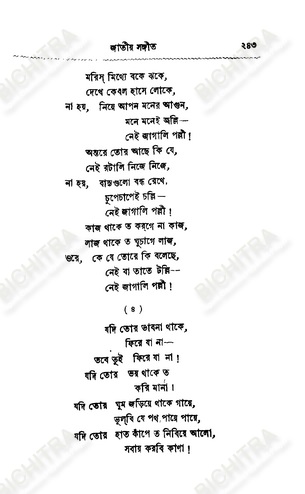 জাতীয় সঙ্গীত ২৪৩
মরিস্ মিথ্যে বকে ঝকে,
দেখে কেবল হাসে লোকে,
না হয়, নিয়ে আপন মনের আগুন,
মনে মনেই জ্বলি—
নেই জাগালি পল্লী!
অন্তরে তোর আছে কি যে,
নেই রটালি নিজে নিজে,
না হয়, বাদ্যগুলো বন্ধ রেখে,
চুপেচাপেই চল্লি—
নেই জাগালি পল্লী!
কাজ থাকে ত কর্‌গে না কাজ,
লাজ থাকে ত ঘুচাগে লাজ,
ওরে, কে যে তোরে কি বলেছে,
নেই বা তাতে টল্লি—
নেই জাগালি পল্লী!
( ৪ )
যদি তোর ভাবনা থাকে,
ফিরে যা না—
তবে তুই ফিরে যা না!
যদি তোর ভয় থাকে ত
করি মানা!
যদি তোর ঘুম জড়িয়ে থাকে গায়ে,
ভুল্‌বি যে পথ পায়ে পায়ে,
যদি তোর হাত কাঁপে ত নিবিয়ে আলো,
সবায় করবি কাণা!
BICHITRA